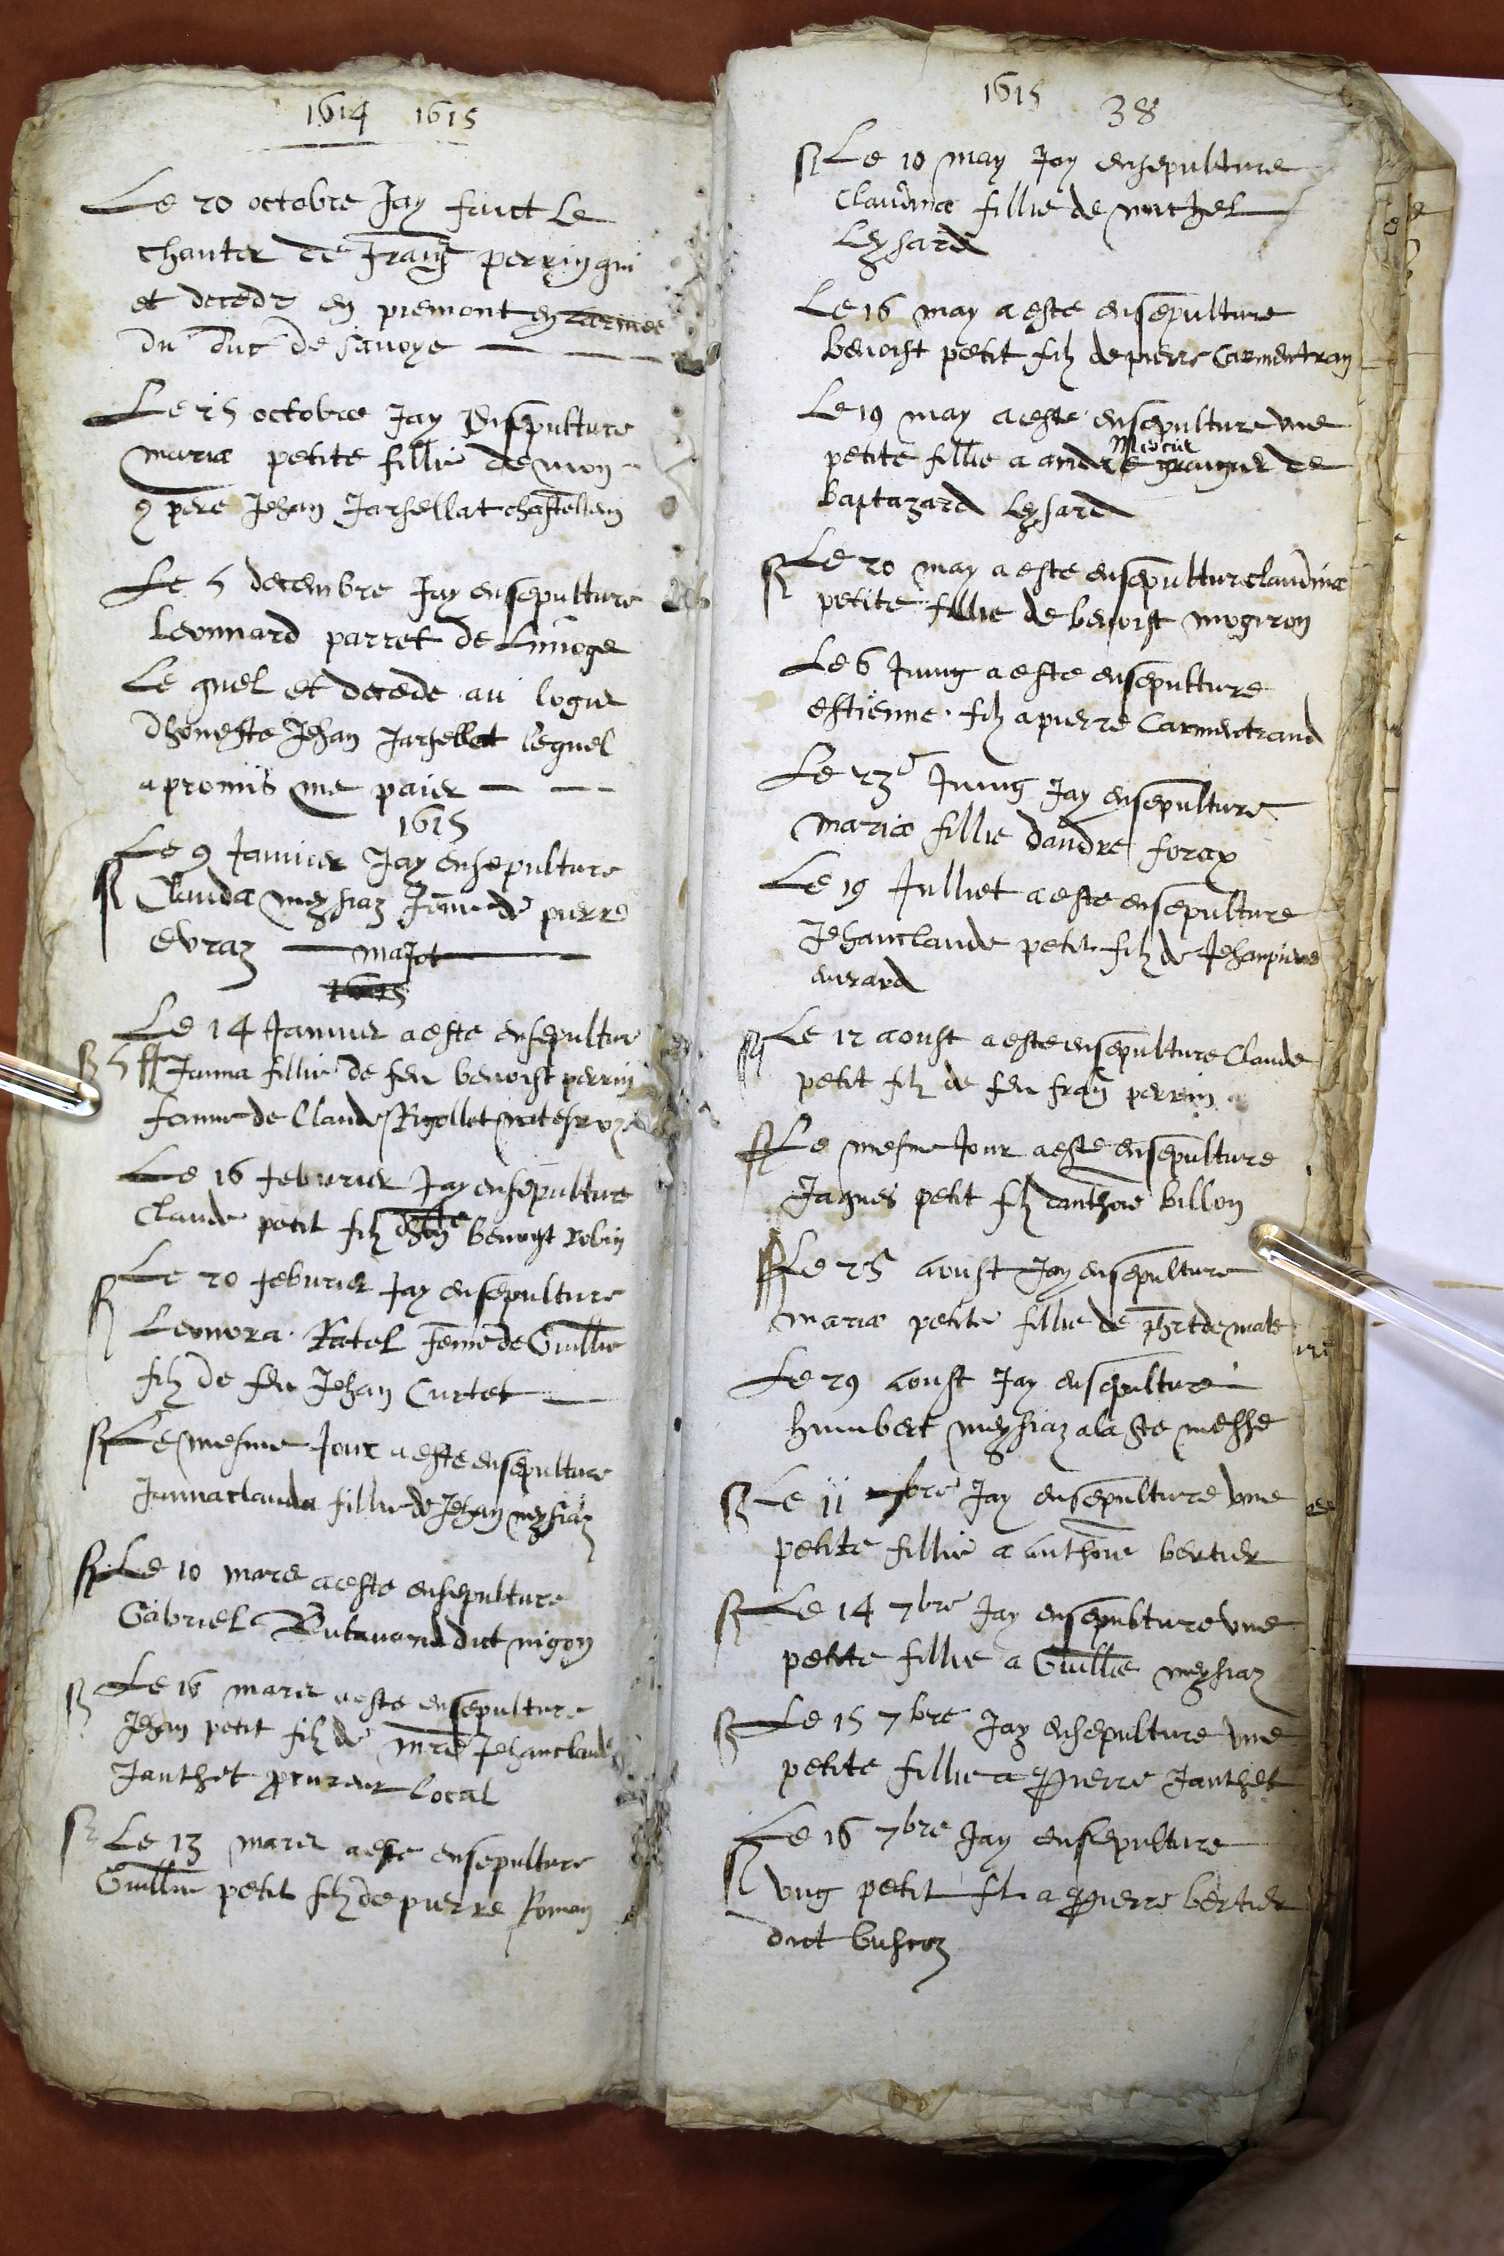 1614 1615
Le 20 octobre Jay faict Le
chanter de Franç perrin qui
et decede en piemont en larmee
du duc de Savoye
Le 25 octobre Jay Ensepulture
maria petite fillie de mon
pere Jehan Jarsellat chastellein
Le 5 decembre Jay ensepulture
Leonnard parret de Limoge
Le quel et decede au logis
dhoneste Jehan Jarsellat lequel
a promis me paier
1615
Le 9 Janvier Jay ensepulture
Clauda meysiaz feme de pierre
evraz majot
1615
Le 14 Janvier a este ensepulture
Janna fillie de feu benoist perrin
femme de Claude Rigollet
Le 16 feburier Jay ensepulture
Claude petit filz benoist robin
Le 20 feburier Jay ensepulture
Leonora Ratel feme de Guillie
filz de feu Jehan Curtet
Le mesme Jour a este ensepulture
Jannaclauda fillie de Jehan meysiaz
Le 10 mars a este ensepulture
Gabriel Butavand dict nigon
Le 16 mars a este ensepulture
Jehan petit filz de mre Jehanclaude
Janthet procureur Local
Le 13 mars a este ensepulture
Guillie petit filz de pierre Roman
1615 38
Le 10 may Jay ensepulture
Claudina fillie de michel
Leysard
Le 16 may a este ensepulture
benoist petit filz de pierre Carmentran
Le 19 may a este ensepulture une
Mercier
petite fillie a andre grangier de
baptazard Leysard
Le 20 may a este ensepulture claudina
petite fillie de benoist mogiron
Le 6 Juing a este ensepulture
estienne filz a pierre Carmentrand
Le 23 Juing Jay ensepulture
maria fillie dandre forax
Le 19 Julliet a este ensepulture
Jehanclaude petit filz de Jehanpierre
evrard
Le 12 aoust a este ensepulture Claude
petit filz de feu franç perrin
Le mesme Jour a este ensepulture
Jaques petit filz danthoine billon
Le 25 aoust Jay ensepulture
maria petite fillie de
Le 29 aoust Jay ensepulture
humbert meysiaz a la ste messe
Le 11 7bre Jay ensepulture une
petite fillie a anthoine bertier
Le 14 7bre Jay ensepulture une
petite fillie a Guillie meysiaz
Le 15 7bre Jay ensepulture une
petite fillie a Pierre Janthet
Le 16 7bre Jay ensepulture
ung petit filz a Pierre bertier
dict buscoz